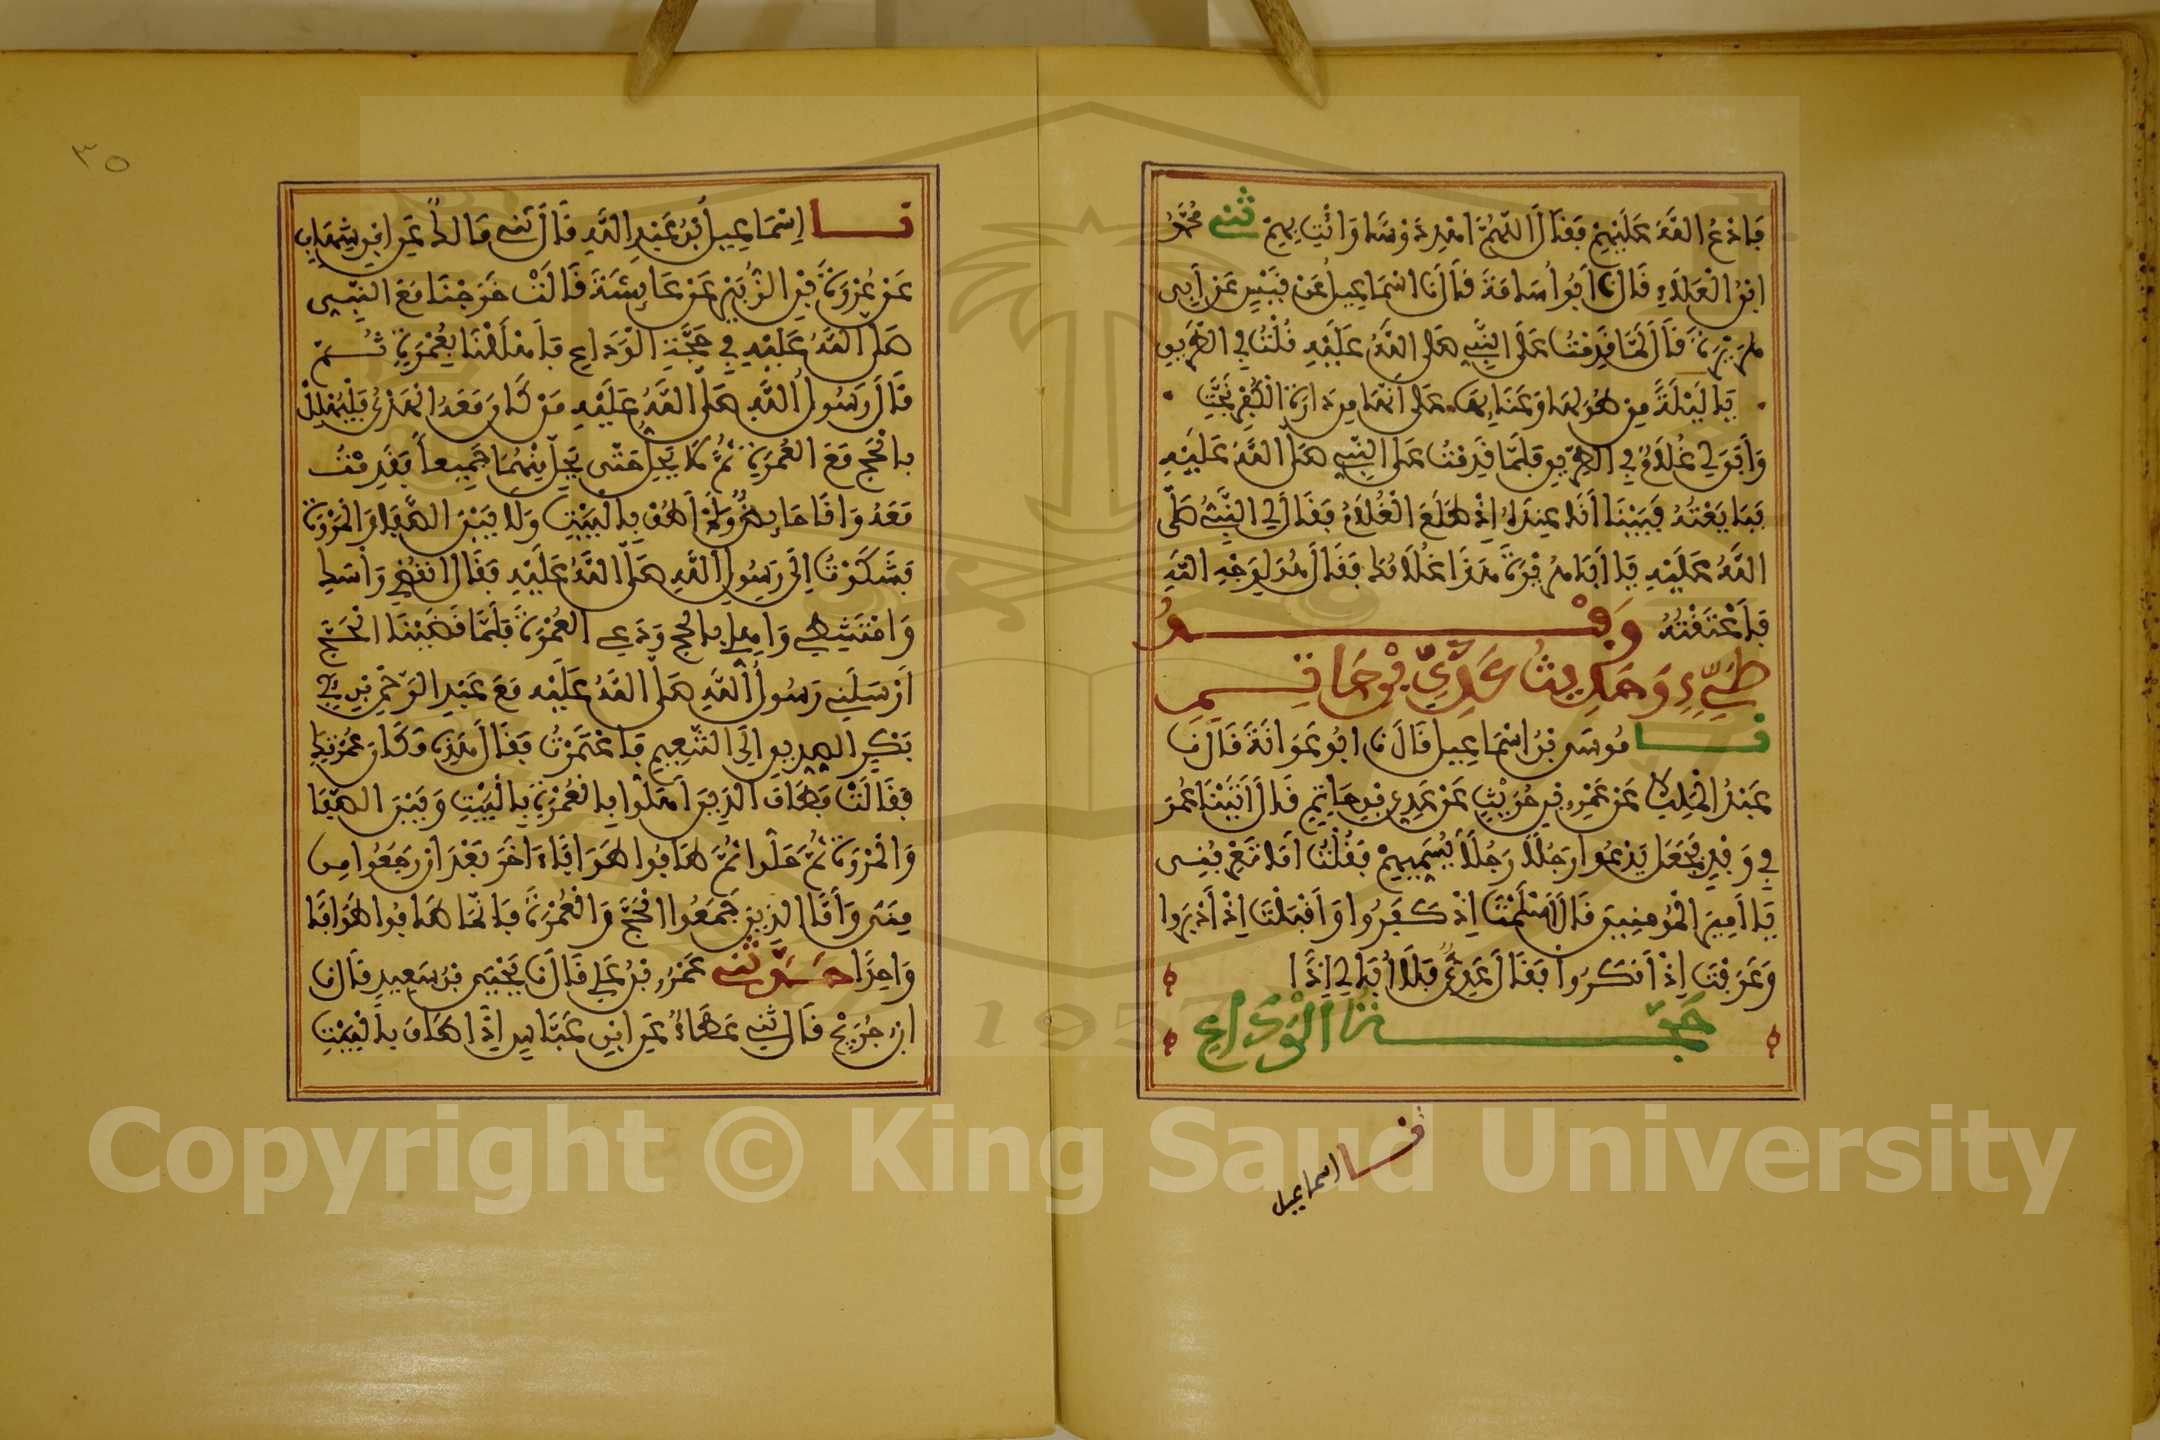 فَادْعُ اللَّهَ عَلَيْهِمْ فَقَالَ اللَّهُمَّ اهْدِ دَوْسًا وَائْتِ بِهِمْ ثني مُحَمَّدُ
ابْنُ الْعَلَاءِ قَالَ نَا أَبُو أُسَامَةَ قَالَ نَا إِسْمَاعِيلُ عَنْ قَيْسٍ عَنْ أَبِي
هُرَيْرَةَ قَالَ لَمَّا قَدِمْتُ عَلَى النَّبِيِّ صَلَّى اللَّهُ عَلَيْهِ قُلْتُ فِي الطَّرِيقِ
يَا لَيْلَةً مِنْ طُولِهَا وَعَنَائِهَا عَلَى أَنَّهَا مِنْ دَارَةِ الْكُفْرِ نَجَّتِ
وَأَبَقَ لِي غُلَامٌ فِي الطَّرِيقِ فَلَمَّا قَدِمْتُ عَلَى النَّبِيِّ صَلَّى اللَّهُ عَلَيْهِ
فَبَايَعْتُهُ فَبَيْنَا أَنَا عِنْدَهُ إِذْ طَلَعَ الْغُلَامُ فَقَالَ لِي النَّبِيُّ صَلَّى
اللَّهُ عَلَيْهِ يَا أَبَا هُرَيْرَةَ هَذَا غُلَامُكَ فَقَالَ هُوَ لِوَجْهِ اللَّهِ
فَأَعْتَقْتُهُ وَفْدُ
طَيِّءٍ وَحَدِيثُ عَدِيِّ بْنِ حَاتِمٍ
نا مُوسَى بْنُ إِسْمَاعِيلَ قَالَ نَا أَبُو عَوَانَةَ قَالَ نَا
عَبْدُ الْمَلِكِ عَنْ عَمْرِو بْنِ حُرَيْثٍ عَنْ عَدِيِّ بْنِ حَاتِمٍ قَالَ أَتَيْنَا عُمَرَ
فِي وَفْدٍ فَجَعَلَ يَدْعُو رَجُلًا رَجُلًا يُسَمِّيهِمْ فَقُلْتُ أَمَا تَعْرِفُنِي
يَا أَمِيرَ الْمُؤْمِنِينَ قَالَ أَسْلَمْتَ إِذْ كَفَرُوا وَأَقْبَلْتَ إِذْ أَدْبَرُوا
وَعَرَفْتَ إِذْ أَنْكَرُوا فَقَالَ عَدِيٌّ فَلَا أُبَالِي إِذًا
حَجَّةُ الْوَدَاعِ
نا اسماعيل
٣٥
نا إِسْمَاعِيلُ بْنُ عَبْدِ اللَّهِ قَالَ ثني مَالِكٌ عَنِ ابْنِ شِهَابٍ
عَنْ عُرْوَةَ بْنِ الزُّبَيْرِ عَنْ عَائِشَةَ قَالَتْ خَرَجْنَا مَعَ النَّبِيِّ
صَلَّى اللَّهُ عَلَيْهِ فِي حَجَّةِ الْوَدَاعِ فَأَهْلَلْنَا بِعُمْرَةٍ ثُمَّ
قَالَ رَسُولُ اللَّهِ صَلَّى اللَّهُ عَلَيْهِ مَنْ كَانَ مَعَهُ الْهَدْيُ فَلْيُهْلِلْ
بِالْحَجِّ مَعَ الْعُمْرَةِ ثُمَّ لَا يَحِلُّ حَتَّى يَحِلَّ مِنْهُمَا جَمِيعًا فَقَدِمْتُ
مَعَهُ وَأَنَا حَائِضٌ وَلَمْ أَطُفْ بِالْبَيْتِ وَلَا بَيْنَ الصَّفَا وَالْمَرْوَةِ
فَشَكَوْتُ إِلَى رَسُولِ اللَّهِ صَلَّى اللَّهُ عَلَيْهِ فَقَالَ انْقُضِي رَأْسَكِ
وَامْتَشِطِي وَأَهِلِّي بِالْحَجِّ وَدَعِي الْعُمْرَةَ فَلَمَّا قَضَيْنَا الْحَجَّ
أَرْسَلَنِي رَسُولُ اللَّهِ صَلَّى اللَّهُ عَلَيْهِ مَعَ عَبْدِ الرَّحْمَنِ بْنِ أَبِي
بَكْرٍ الصِّدِّيقِ إِلَى التَّنْعِيمِ فَاعْتَمَرْتُ فَقَالَ هَذِهِ مَكَانَ عُمْرَتِكِ
فَقَالَتْ فَطَافَ الَّذِينَ أَهَلُّوا بِالْعُمْرَةِ بِالْبَيْتِ وَبَيْنَ الصَّفَا
وَالْمَرْوَةِ ثُمَّ حَلُّوا ثُمَّ طَافُوا طَوَافًا آخَرَ بَعْدَ أَنْ رَجَعُوا مِنْ
مِنًى وَأَمَّا الَّذِينَ جَمَعُوا الْحَجَّ وَالْعُمْرَةَ فَإِنَّمَا طَافُوا طَوَافًا
وَاحِدًا حَدَّثني عَمْرُو بْنُ عَلِيٍّ قَالَ نَا يَحْيَى بْنُ سَعِيدٍ قَالَ نَا
ابْنُ جُرَيْجٍ قَالَ ثني عَطَاءٌ عَنِ ابْنِ عَبَّاسٍ إِذَا طَافَ بِالْبَيْتِ
1957
Copyright © King Saud University